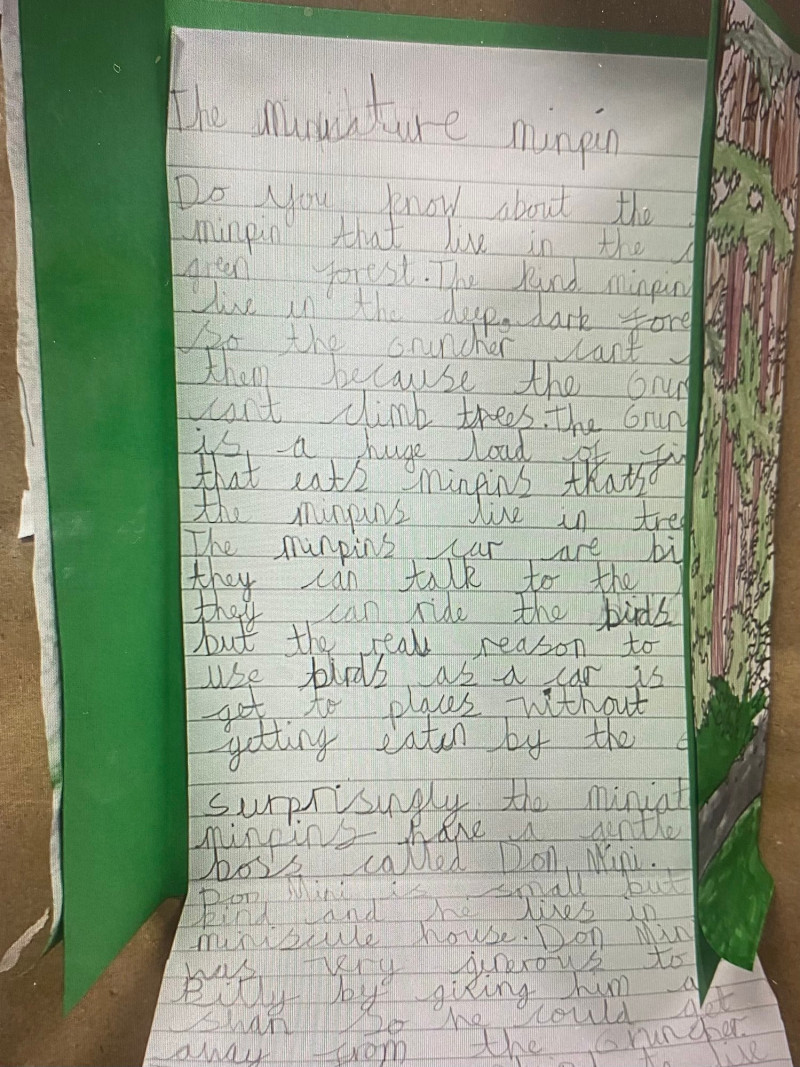 The miniature minpin
Do you know about the
minpin that live in the
green forest. The kind minpin
live in the deep, dark fore
So the Gruncher cant
them because the Grun
cant climb trees. The Grun
is a huge load of
that eats minpins thats
the minpins live in tree
The minpins car are bi
they can talk to the
they can ride the birds
but the real reason to
use birds as a car is
get to places without
getting eaten by the
surprisingly the miniat
minpins have a gentle
boss called Don Mini.
Don Mini is small but
kind and he lives in
miniscule house. Don Min
was very jenerous to
Billy by giving him a
swan so he could get
away from the Gruncher.
to live